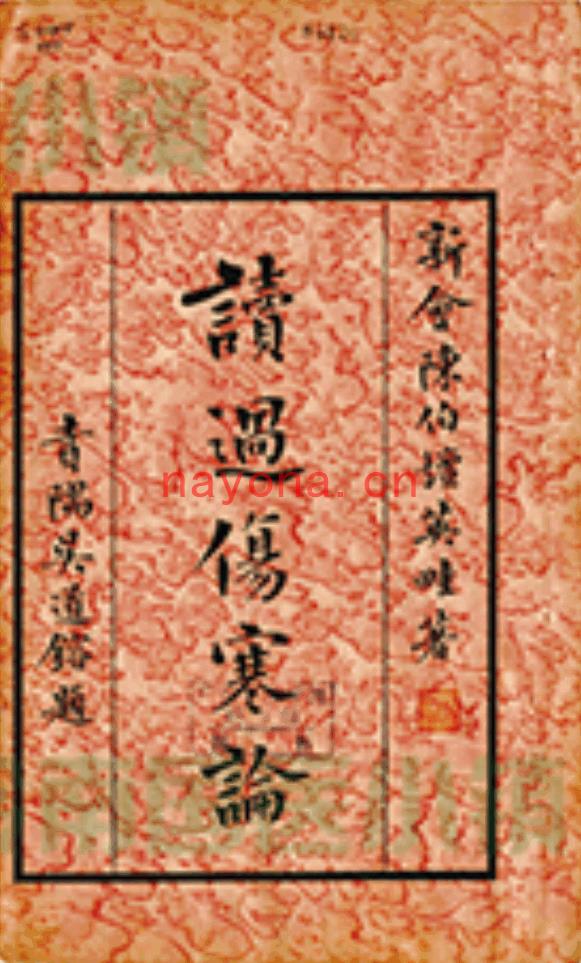 新會陳伯壇英畦著
讀過傷寒論
番禺吳道鎔題
nayona.cn